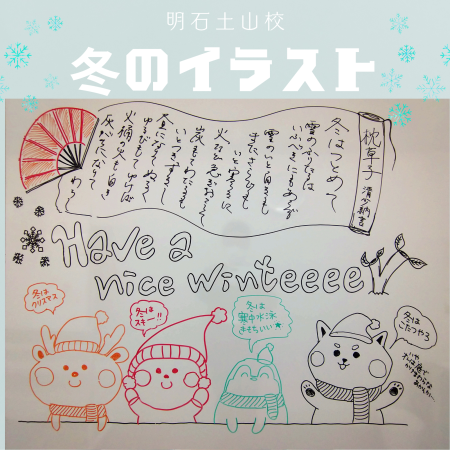 明石土山校
冬のイラスト
枕草子 清少納言
冬はつとめて
雪のふりたるは
いふべきにもあらず
いと白きも
またさらでも
いと寒きに
火など急ぎおこして
炭もてわたるも
いとつきづきし
昼になりて ぬるく
ゆるびもて いけば
火桶の火も 白き
灰がちになりて
わろし
Have a
nice winteeeee
冬は
クリスマス
冬は
スキー!!
冬は
寒中水泳
きもちいい★
冬は
こたつやろ
いや
それは猫で